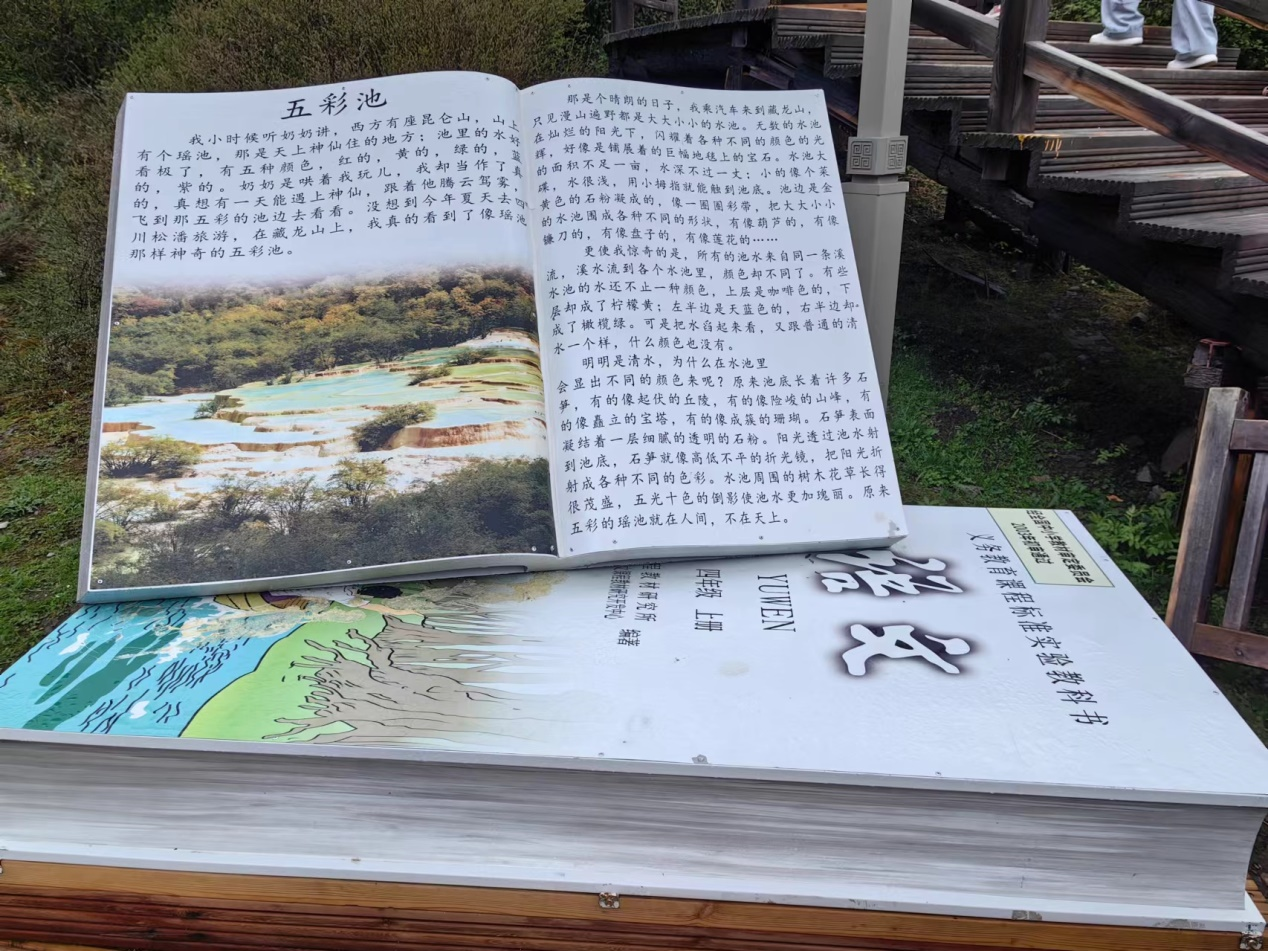 五彩池
我小时候听奶奶讲，西方有座昆仑山，山上
有个瑶池，那是天上神仙住的地方；池里的水好
看极了，有五种颜色，红的，黄的，绿的，蓝
的，紫的。奶奶是哄着我玩儿，我却当作了真
的，真想有一天能遇上神仙，跟着他腾云驾雾，
飞到那五彩的池边去看看。没想到今年夏天去四
川松潘旅游，在藏龙山上，我真的看到了像瑶池
那样神奇的五彩池。
那是个晴朗的日子，我乘汽车来到藏龙山，
只见漫山遍野都是大大小小的水池。无数的水池
在灿烂的阳光下，闪耀着各种不同的颜色的光
辉，好像是铺展着的巨幅地毯上的宝石。水池大
的面积不足一亩，水深不过一丈；小的像个菜
碟，水很浅，用小拇指就能触到池底。池边是金
黄色的石粉凝成的，像一圈圈彩带，把大大小小
的水池围成各种不同的形状，有像葫芦的，有像
镰刀的，有像盘子的，有像莲花的……
更使我惊奇的是，所有的池水来自同一条溪
流，溪水流到各个水池里，颜色却不同了。有些
水池的水还不止一种颜色，上层是咖啡色的，下
层却成了柠檬黄；左半边是天蓝色的，右半边却
成了橄榄绿。可是把水舀起来看，又跟普通的清
水一个样，什么颜色也没有。
明明是清水，为什么在水池里
会显出不同的颜色来呢？原来池底长着许多石
笋，有的像起伏的丘陵，有的像险峻的山峰，有
的像矗立的宝塔，有的像成簇的珊瑚。石笋表面
凝结着一层细腻的透明的石粉。阳光透过池水射
到池底，石笋就像高低不平的折光镜，把阳光折
射成各种不同的色彩。水池周围的树木花草长得
很茂盛，五光十色的倒影使池水更加瑰丽。原来
五彩的瑶池就在人间，不在天上。
义务教育课程标准实验教科书
语文
YUWEN
四年级 上册
编著